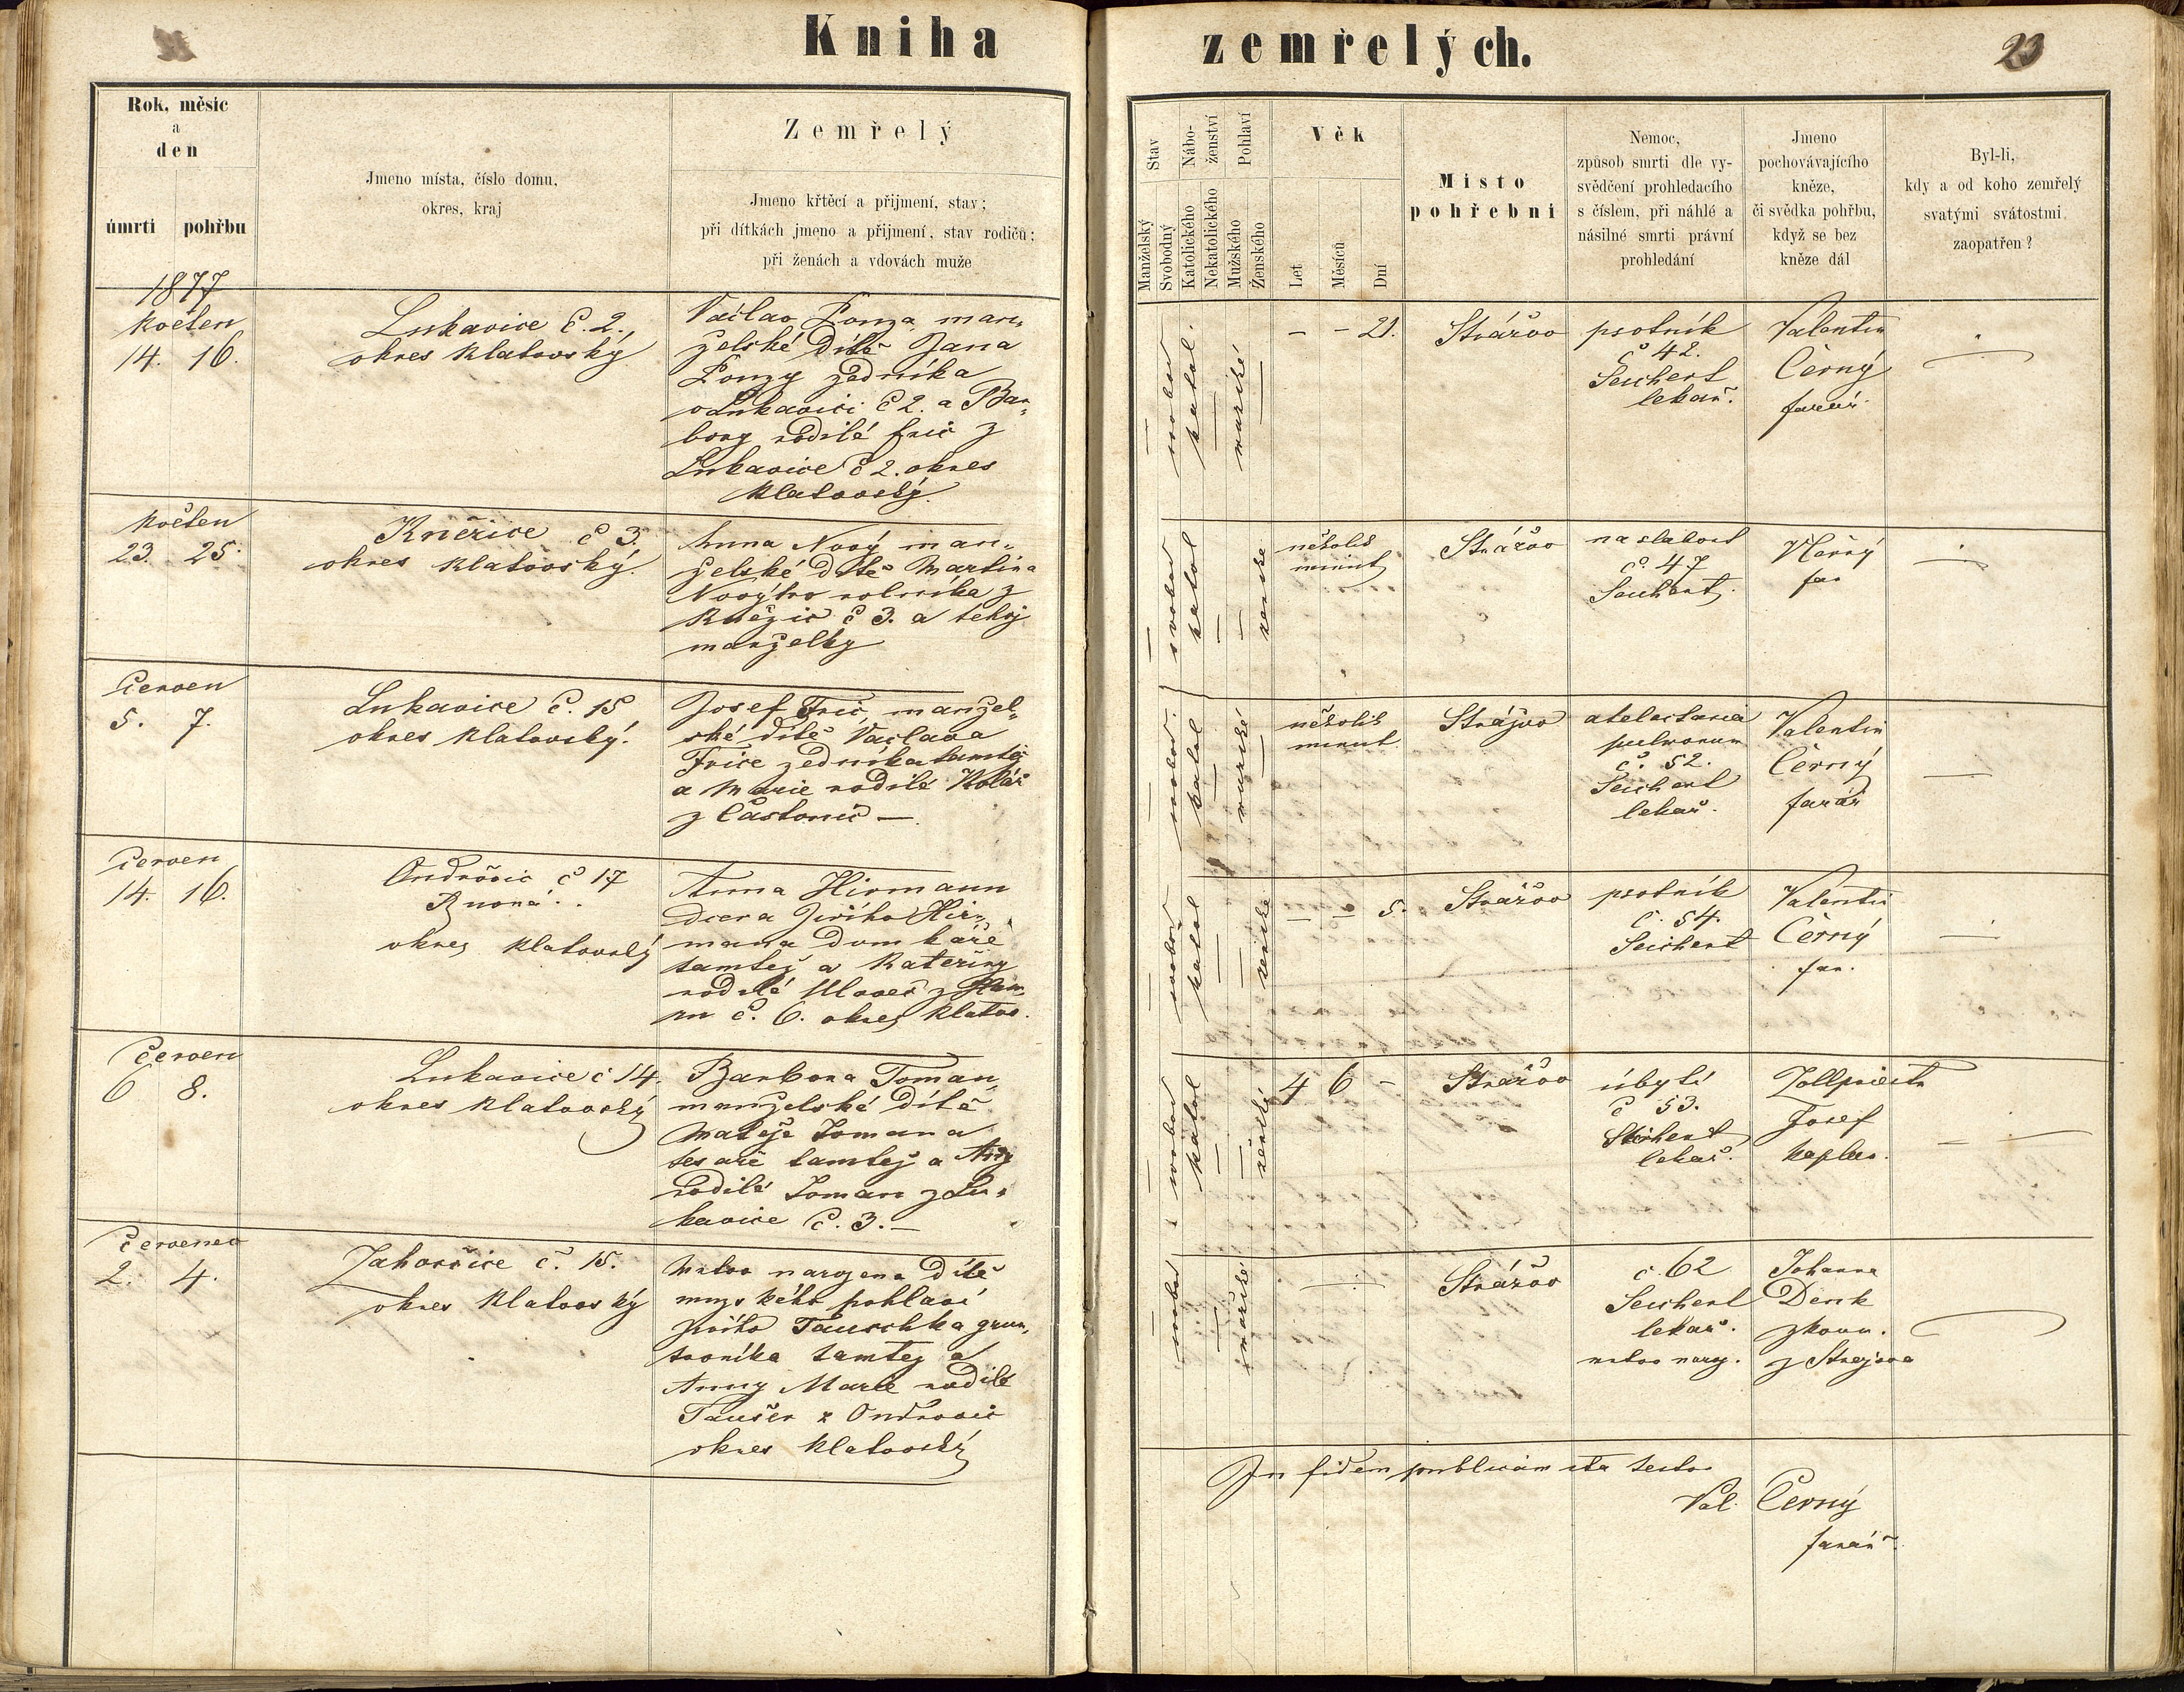 Kniha zemřelých.
23
Rok, měsíc
a
den
úmrti pohřbu
Jmeno místa, číslo domu,
okres, kraj
Zemřelý
Jmeno křtěcí a přijmení, stav;
při dítkách jmeno a přijmení, stav rodičů;
při ženách a vdovách muže
Stav
Manželský
Svobodný
Nábo-
ženství
Katolického
Nekatolického
Pohlaví
Mužského
Ženského
Věk
Let
Měsíců
Dní
Místo
pohřební
Nemoc,
způsob smrti dle vy-
svědčení prohledacího
s číslem, při náhlé a
násilné smrti právní
prohledání
Jmeno
pochovávajícího
kněze,
či svědka pohřbu,
když se bez
kněze dál
Byl-li,
kdy a od koho zemřelý
svatými svátostmi
zaopatřen?
1877
květen
14. 16.
Lukavice č. 2.,
okres klatovský
Václav Ponza, man„
želské dítě Jana
Ponzy zedníka
v Lukavici č 2. a Bar„
bory rodilé fric z
Lukavice č 2. okres
klatovský.
— svobod katol. — mužské —
– – 21.
Strážov
psotník
č 42.
Seichert
lekař.
Valentin
Černý
farář
—
květen
23. 25.
Kněžice č 3.
okres klatovský.
Anna Nový man„
želské dítě Martina
Novýho rolníka z
Kněžic č 3. a tehož
manželky
— svobod katol — — ženské
několik
minut
Strážov
na slabost
č. 47
Seichert
Černý
far
—
Červen
5. 7.
Lukavice č. 15
okres klatovský.
Josef Fric, manžel„
ské dítě Václava
Frice zedníka tamtéž
a Marie rodilé Kolář
z Častonic —
— svobod. katol — mužské —
několik
minut.
Strážov
atelectasia
pulmonum
č. 52.
Seichert
lekař.
Valentin
Černý
farář
—
červen
14. 16.
Ondřovic č 17
okres klatovský
Anna Hirmann
dcera Jiřího Hir„
mana domkáře
tamtéž a Kateřiny
rodilé
č. 6. okres klatov.
— svobod katol — — ženské
– – 5.
Strážov
psotník
č. 54.
Seichert
Valentin
Černý
far.
—
Červen
6 8.
Lukavice č 14.
okres klatovský
Barbora Toman„
manželské dítě
Matěje Tomana
tesaře tamtéž a Anny
rodilé Toman z Lu„
kavice č. 3. —
— svobod katol — — ženské
4 6 –
Strážov
úbytí
č 53.
Seichert
lekař.
Zollpriester
Josef
kaplan.
—
červenec
2. 4.
Zahorčice č. 15.
okres klatovský
Mrtvo narozeno dítě
mužského pohlaví
Jiřího Tauschka grun„
tovníka tamtéž a
Anny Marie rodilé
Taušer z Ondřovic
okres klatovský
— svobod — mužské
—
Strážov
č. 62
Seichert
lekař.
mrtvo naroz.
Johanna
Denk
zkouš.
z Strážova
—
In fidem publicam ita testor
Val. Černý
farář.